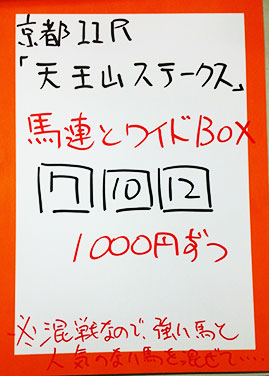 京都11R
「天王山ステークス」
馬連とワイドBOX
7 10 12
1000円ずつ
※混戦なので、強い馬と
人気のない馬を混ぜて....